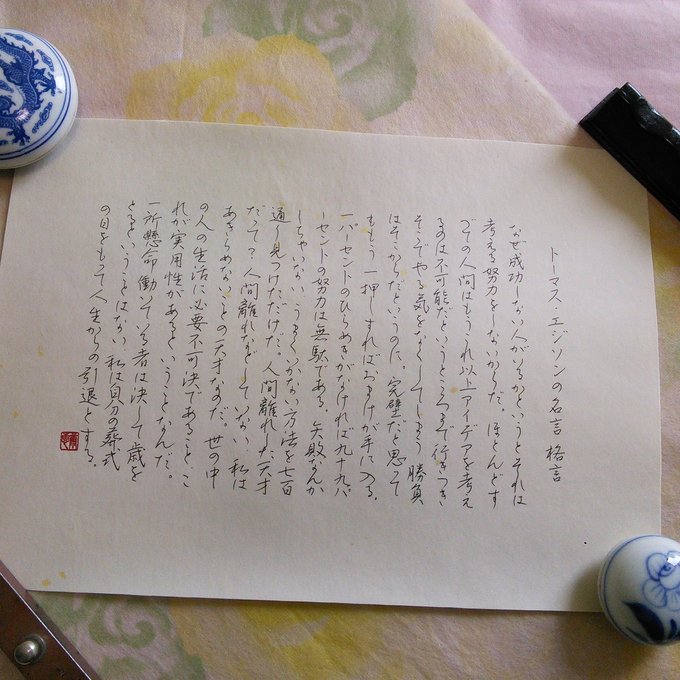 トーマス・エジソンの名言 格言
なぜ成功しない人がいるかというとそれは
考える努力をしないからだ。ほとんどす
べての人間はもうこれ以上アイデアを考え
るのは不可能だというところまで行きつき
そこでやる気をなくしてしまう 勝負
はそこからだというのに。完壁だと思って
ももう一押しすればおまけが手に入る。
一パーセントのひらめきがなければ九十九パ
ーセントの努力は無駄である。失敗なんか
しちゃいない。うまくいかない方法を七百
通り見つけただけだ。人間離れした天才
だって？人間離れなどしていない 私は
あきらめないことの天才なのだ。世の中
の人の生活に必要不可決であること、こ
れが実用性があるということなんだ。
一所懸命働いている者は決して歳を
とるということはない 私は自分の葬式
の日をもって人生からの引退とする。